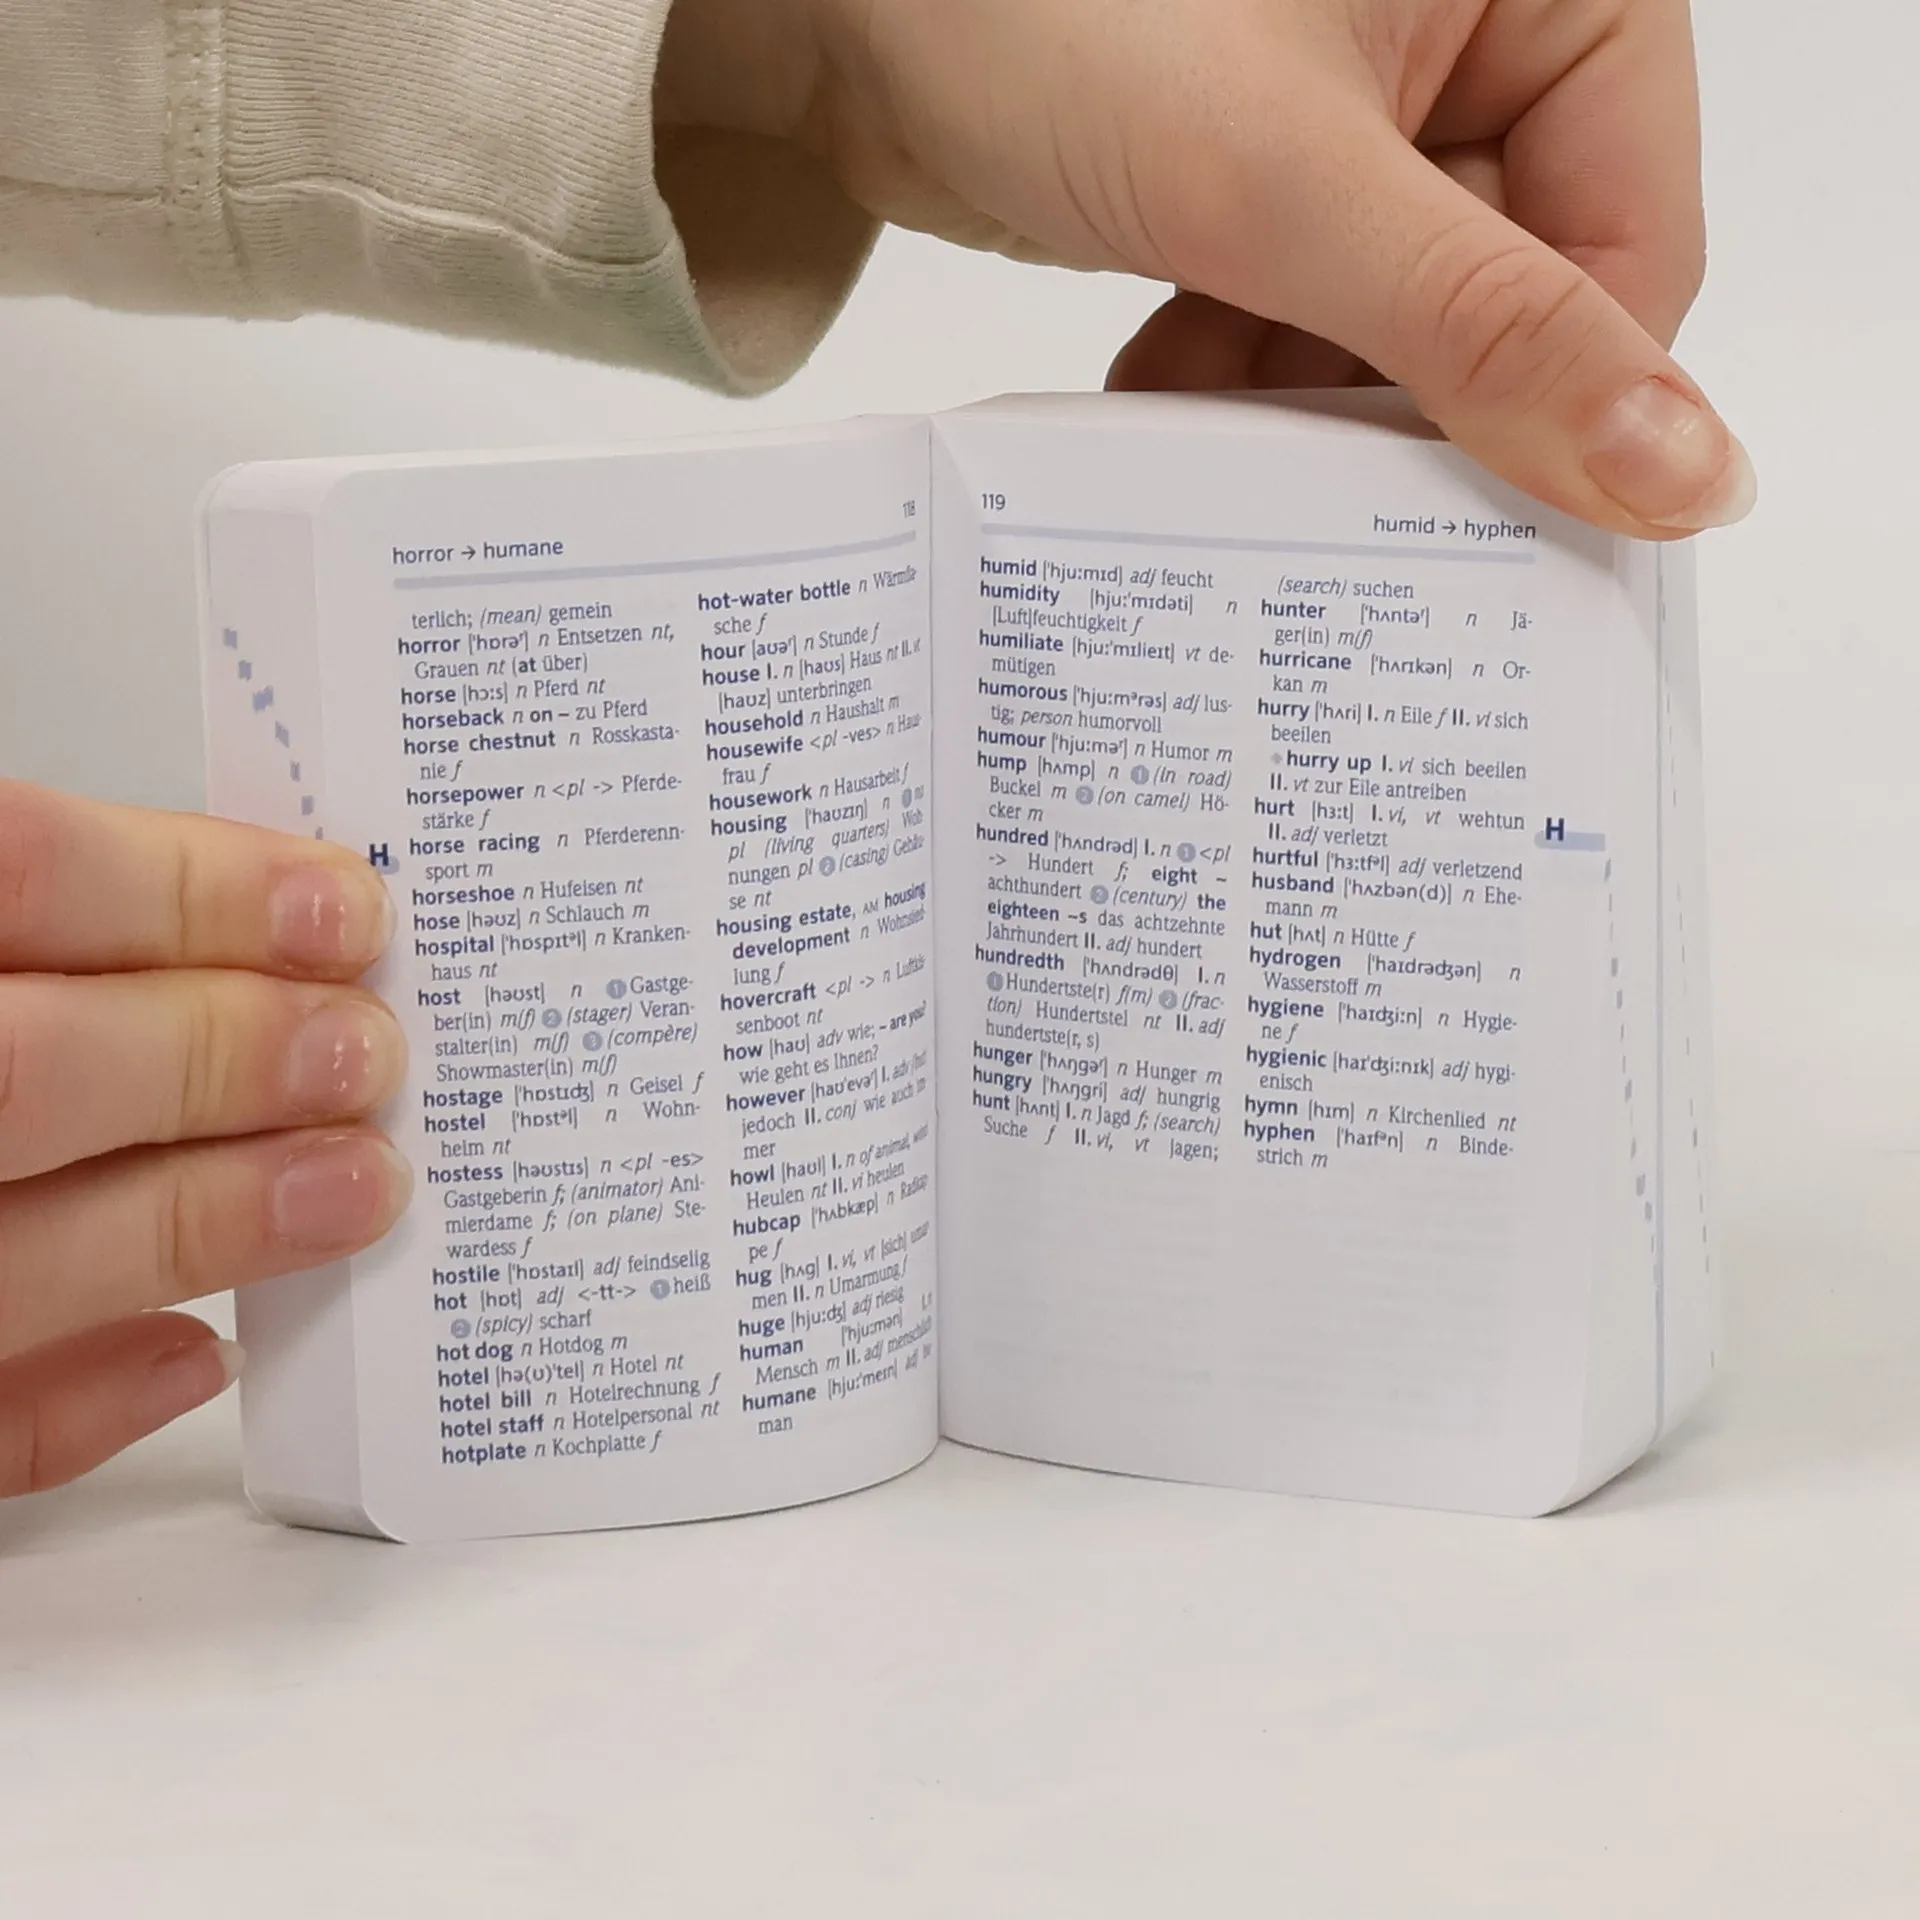 118
horror → humane
terlich; (mean) gemein
horror ['hɒrəʳ] n Entsetzen nt,
Grauen nt (at über)
horse [hɔːs] n Pferd nt
horseback n on ~ zu Pferd
horse chestnut n Rosskasta-
nie f
horsepower n <pl -> Pferde-
stärke f
horse racing n Pferderenn-
sport m
horseshoe n Hufeisen nt
hose [həʊz] n Schlauch m
hospital ['hɒspɪtᵊl] n Kranken-
haus nt
host [həʊst] n ① Gastge-
ber(in) m(f) ② (stager) Veran-
stalter(in) m(f) ③ (compère)
Showmaster(in) m(f)
hostage ['hɒstɪdʒ] n Geisel f
hostel ['hɒstᵊl] n Wohn-
heim nt
hostess [həʊstɪs] n <pl -es>
Gastgeberin f; (animator) Ani-
mierdame f; (on plane) Ste-
wardess f
hostile ['hɒstaɪl] adj feindselig
hot [hɒt] adj <-tt-> ① heiß
② (spicy) scharf
hot dog n Hotdog m
hotel [hə(ʊ)'tel] n Hotel nt
hotel bill n Hotelrechnung f
hotel staff n Hotelpersonal nt
hotplate n Kochplatte f
H
hot-water bottle n Wärmfla-
sche f
hour [aʊəʳ] n Stunde f
house I. n [haʊs] Haus nt II. vt
[haʊz] unterbringen
household n Haushalt m
housewife <pl -ves> n Haus-
frau f
housework n Hausarbeit f
housing ['haʊzɪŋ] n ①
pl (living quarters) Woh-
nungen pl ② (casing) Gehäu-
se nt
housing estate, AM housing
development n Wohnsied-
lung f
hovercraft <pl -> n Luftkis-
senboot nt
how [haʊ] adv wie; ~ are you?
wie geht es Ihnen?
however [haʊ'evəʳ] I. adv
jedoch II. conj wie auch im-
mer
howl [haʊl] I. n of animal, wind
Heulen nt II. vi heulen
hubcap ['hʌbkæp] n Radkap-
pe f
hug [hʌg] I. vi, vt [sich] umar-
men II. n Umarmung f
huge [hju:dʒ] adj riesig
human ['hju:mən] I. n
Mensch m II. adj menschlich
humane [hju:'meɪn] adj hu-
man
119
humid → hyphen
humid ['hju:mɪd] adj feucht
humidity [hju:'mɪdəti] n
[Luft]feuchtigkeit f
humiliate [hju:'mɪlieɪt] vt de-
mütigen
humorous ['hju:mᵊrəs] adj lus-
tig; person humorvoll
humour ['hju:məʳ] n Humor m
hump [hʌmp] n ① (in road)
Buckel m ② (on camel) Hö-
cker m
hundred ['hʌndrəd] I. n ① <pl
-> Hundert f; eight ~
achthundert ② (century) the
eighteen ~s das achtzehnte
Jahrhundert II. adj hundert
hundredth ['hʌndrədθ] I. n
① Hundertste(r) f(m) ② (frac-
tion) Hundertstel nt II. adj
hundertste(r, s)
hunger ['hʌŋgəʳ] n Hunger m
hungry ['hʌŋgri] adj hungrig
hunt [hʌnt] I. n Jagd f; (search)
Suche f II. vi, vt jagen;
(search) suchen
hunter ['hʌntəʳ] n Jä-
ger(in) m(f)
hurricane ['hʌrɪkən] n Or-
kan m
hurry ['hʌri] I. n Eile f II. vi sich
beeilen
hurry up I. vi sich beeilen
II. vt zur Eile antreiben
hurt [hɜ:t] I. vi, vt wehtun
II. adj verletzt
hurtful ['hɜ:tfᵊl] adj verletzend
husband ['hʌzbən(d)] n Ehe-
mann m
hut [hʌt] n Hütte f
hydrogen ['haɪdrədʒən] n
Wasserstoff m
hygiene ['haɪdʒi:n] n Hygie-
ne f
hygienic [haɪ'dʒi:nɪk] adj hygi-
enisch
hymn [hɪm] n Kirchenlied nt
hyphen ['haɪfᵊn] n Binde-
strich m
H